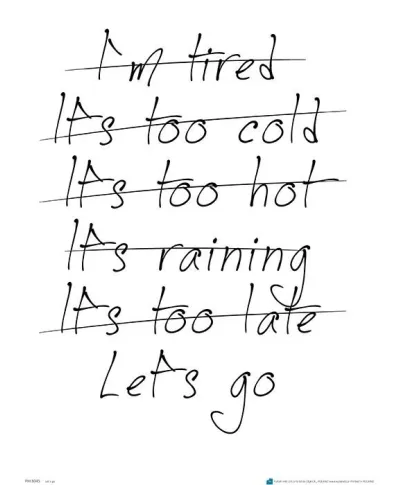 I'm tired
It's too cold
It's too hot
It's raining
It's too late
Let's go